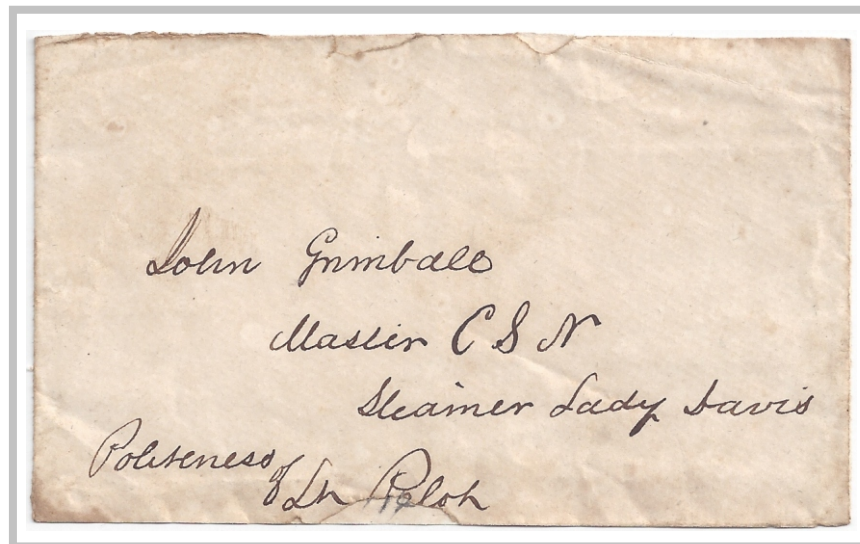 John Grimball
Master C S N
Steamer Lady Davis
Politeness
of Lt Pelot